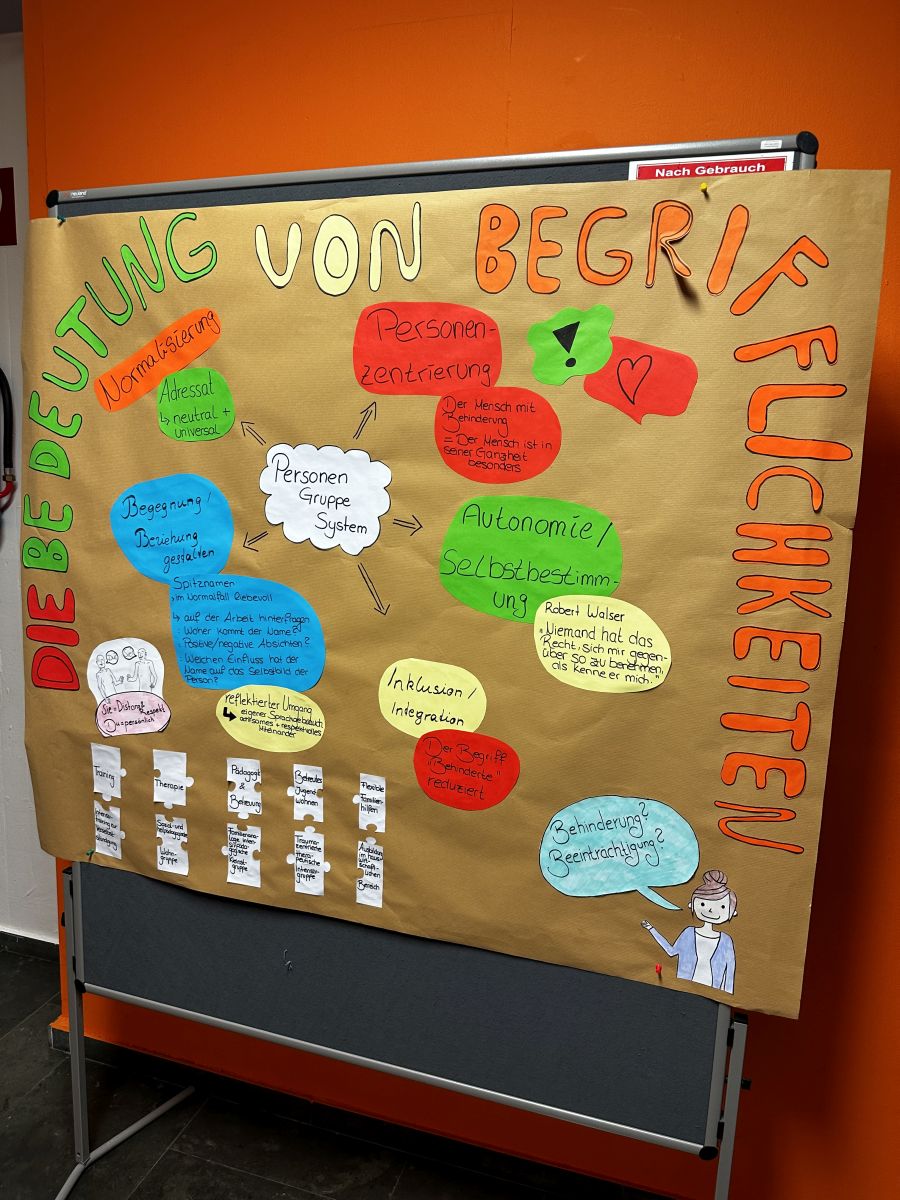 neuland
Nach Gebrauch
DIE BEDEUTUNG VON BEGRIFFLICHKEITEN
Normalisierung
Adressat
↳ neutral +
universal
Personen-
zentrierung
!
Der Mensch mit
Behinderung
= Der Mensch ist in
seiner Ganzheit
besonders
Personen
Gruppe
System
Begegnung /
Beziehung
gestalten
Spitznamen
im Normalfall liebevoll
↳ auf der Arbeit hinterfragen
: Woher kommt der Name?
: Positive/negative Absichten?
: Welchen Einfluss hat der
Name auf das Selbstbild der
Person?
reflektierter Umgang
↳ eigener Sprachgebrauch
achtsames + respektvolles
Miteinander
Sie = Distanz, Respekt
Du = persönlich
Autonomie /
Selbstbestimm-
ung
Robert Walser
"Niemand hat das
Recht, sich mir gegen-
über so zu benehmen,
als kenne er mich."
Inklusion /
Integration
Der Begriff
"Behinderte"
reduziert
Training
Therapie
Pädagogik
&
Betreuung
Betreutes
Jugend
wohnen
Flexible
Familien-
hilfen
Wohn-
gruppe
Trauma-
zentrierte
thera-
peutische
Intensiv-
gruppe
Ausbildung
im haus-
wirt-
schaft-
lichen
Bereich
Behinderung?
Beeinträchtigung?